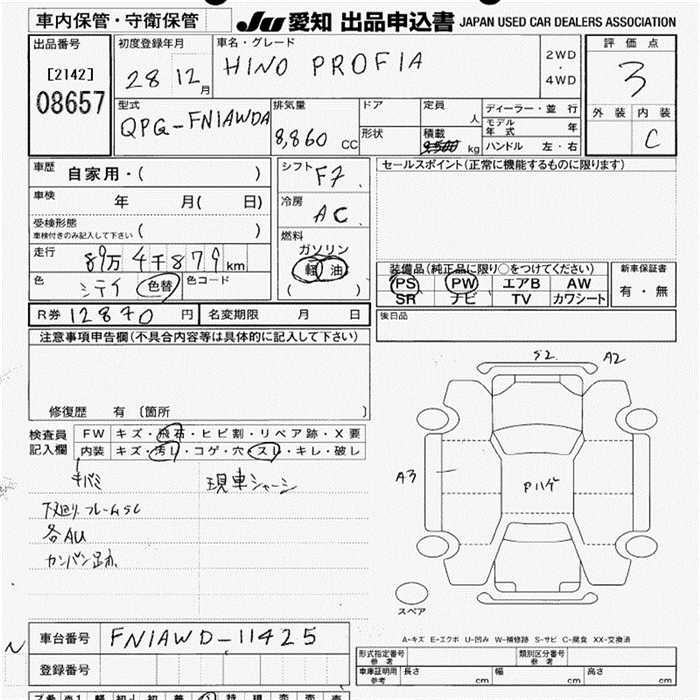 車内保管・守衛保管 JU 愛知 出品申込書 JAPAN USED CAR DEALERS ASSOCIATION
出品番号 初度登録年月 車名・グレード 2WD・4WD 評価点
[2142] 28 12月 HINO PROFIA 3
08657 外装 内装
型式 排気量 ドア 定員 人 ディーラー・並行
QPG-FN1AWDA 8,860 CC 形状 積載 kg モデル年式 年 C
ハンドル 左・右
車歴 自家用・( ) シフト F7 セールスポイント(正常に機能するものに限ります)
車検 年 月( 日) 冷房 AC
受検形態 車検付きのみ記入して下さい ( ) 燃料
走行 89万4千879km ガソリン 軽油 ( )
装備品(純正品に限り○をつけてください) 新車保証書
色 シテイ 色替 色コード PS PW エアB AW 有・無
SR ナビ TV カワシート
R券 12870円 名変期限 月 日 後日品
注意事項申告欄(不具合内容等は具体的に記入して下さい)
修復歴 有 〔箇所 〕
検査員記入欄 FW キズ・飛石・ヒビ割・リペア跡・X要
内装 キズ・汚レ・コゲ・穴・スレ・キレ・破レ
キバミ 現車シャーシ
下廻り フレームSC
各AU
カンバン跡
S2 A2
A3 Pハゲ
スペア
A-キズ E-エクボ U-凹み W-補修跡 S-サビ C-腐食 XX-交換済
N 車台番号 FN1AWD-11425
登録番号
形式指定番号 参考 類別区分番号 参考
車庫証明用 参考 長さ cm 幅 cm 高さ cm